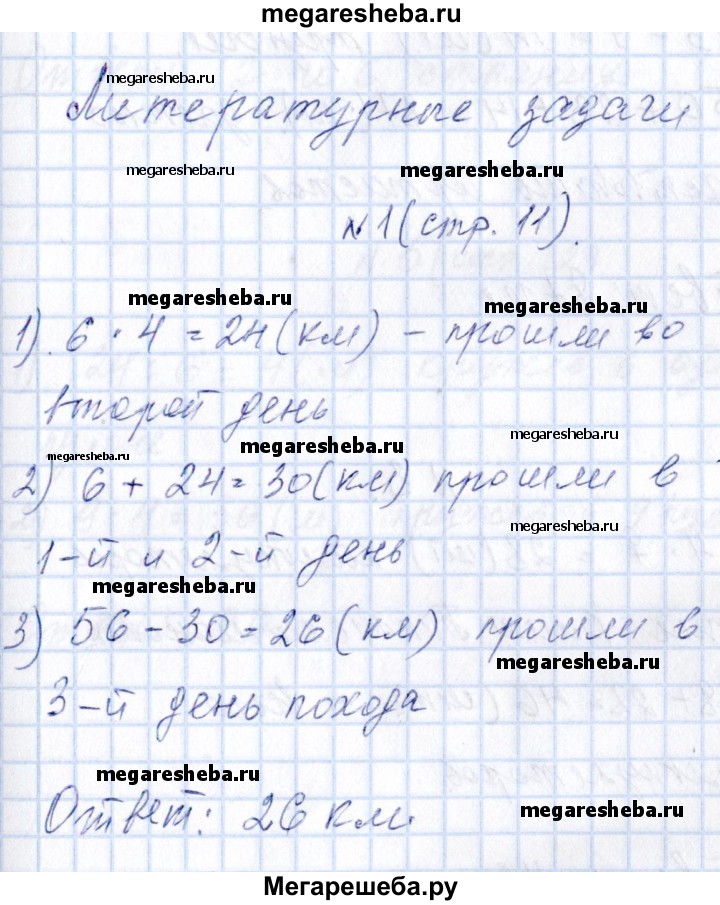 megaresheba.ru
megaresheba.ru
Литературные задачи
megaresheba.ru
megaresheba.ru
№1 (стр. 11).
megaresheba.ru
megaresheba.ru
1). 6 · 4 = 24 (км) – прошли во
второй день
megaresheba.ru
megaresheba.ru
megaresheba.ru
2) 6 + 24 = 30 (км) прошли в
megaresheba.ru
1-й и 2-й день
megaresheba.ru
3) 56 – 30 = 26 (км) прошли в
megaresheba.ru
3-й день похода
megaresheba.ru
Ответ: 26 км.
megaresheba.ru
Мегарешеба.ру